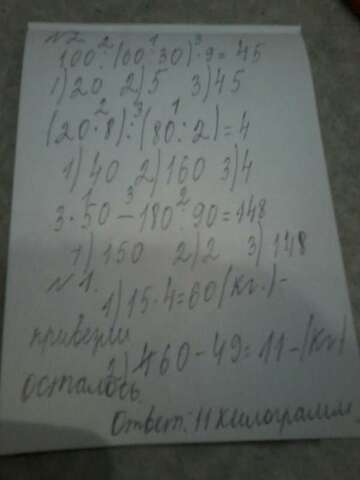 №2
100:(60:30)·9=45
1)20 2)5 3)45
(20·8):(80:2)=4
1)40 2)160 3)4
3·50-180:90=148
1)150 2)2 3)148
№1.
1)15·4=60(кг.)-
привезли
2)60-49=11-(кг)
осталось.
Ответ: 11 килограмм.